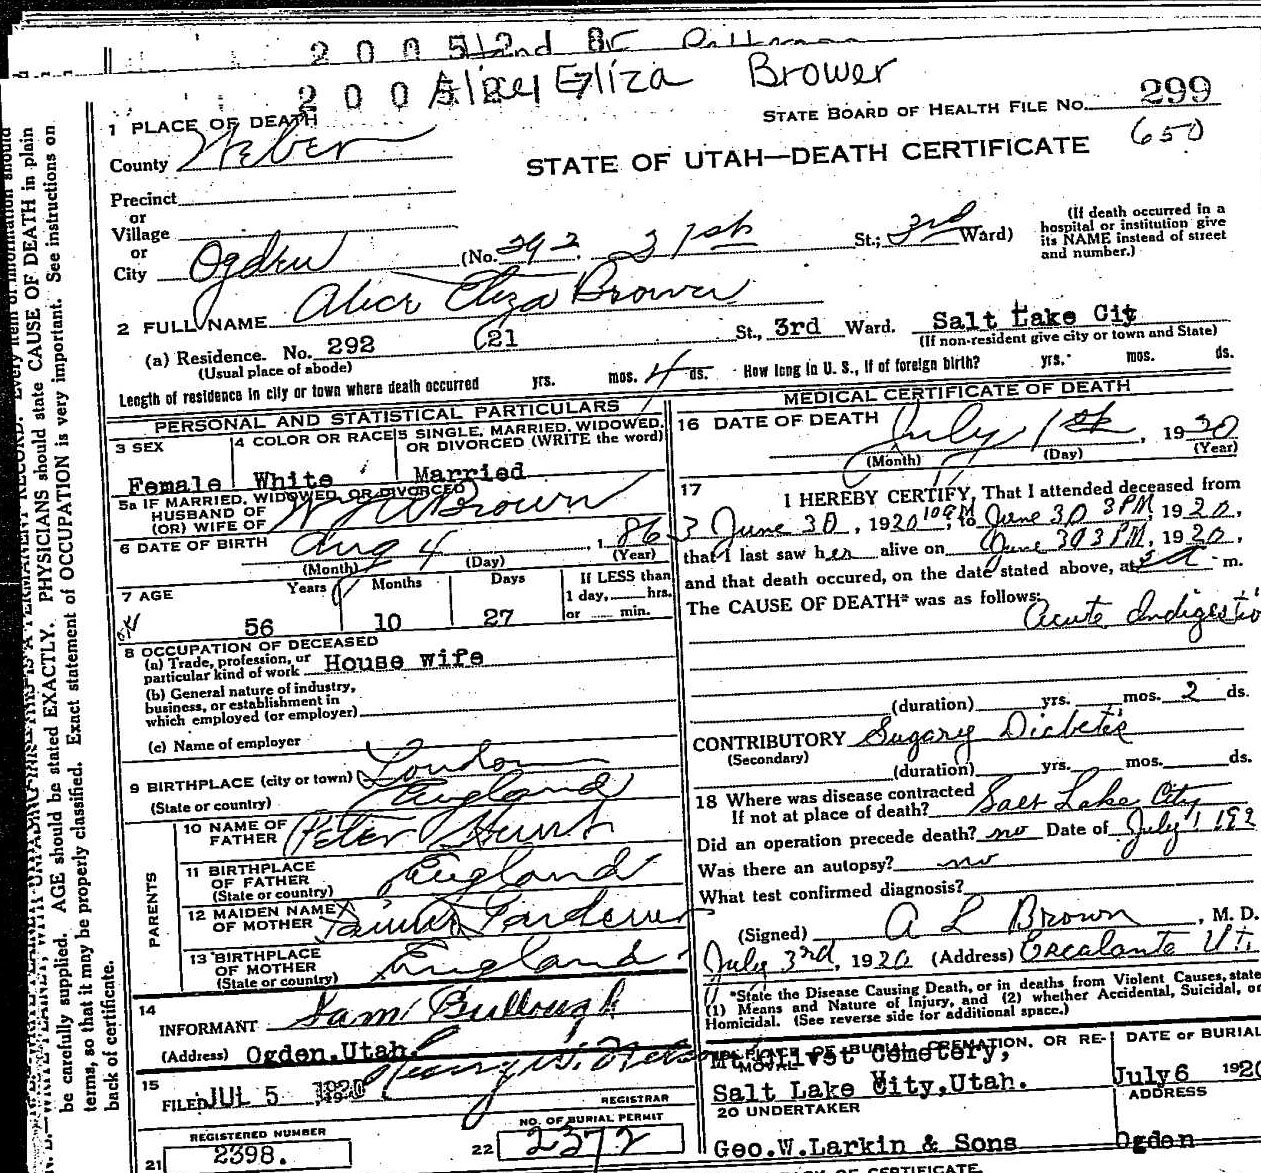 2 0 0 5 2nd
2 0 0 5 Alice Eliza Brower
STATE BOARD OF HEALTH FILE No. 299
650
1 PLACE OF DEATH
County Weber
STATE OF UTAH—DEATH CERTIFICATE
Precinct
or
Village
or
City Ogden (No. 292. 21st St.; 3rd Ward)
(If death occurred in a
hospital or institution give
its NAME instead of street
and number.)
2 FULL NAME Alice Eliza Brower
(a) Residence. No. 292 21 St., 3rd Ward. Salt Lake Cit
(Usual place of abode) (If non-resident give city or town and State)
Length of residence in city or town where death occurred yrs. mos. 4 ds. How long in U. S., if of foreign birth? yrs. mos. ds.
PERSONAL AND STATISTICAL PARTICULARS
3 SEX 4 COLOR OR RACE 5 SINGLE, MARRIED, WIDOWED,
OR DIVORCED (WRITE the word)
Female White Married
5a IF MARRIED, WIDOWED, OR DIVORCED
HUSBAND OF
(OR) WIFE OF
6 DATE OF BIRTH Aug 4, 1863
(Month) (Day) (Year)
7 AGE Years Months Days If LESS than
1 day, hrs.
or min.
56 10 27
8 OCCUPATION OF DECEASED
(a) Trade, profession, or
particular kind of work House wife
(b) General nature of industry,
business, or establishment in
which employed (or employer)
(c) Name of employer
9 BIRTHPLACE (city or town) London
(State or country) England
PARENTS
10 NAME OF
FATHER Peter Hunt
11 BIRTHPLACE
OF FATHER England
(State or country)
12 MAIDEN NAME
OF MOTHER
13 BIRTHPLACE
OF MOTHER England
(State or country)
14
INFORMANT Sam Bullough
(Address) Ogden,Utah.
15
FILED JUL 5 1920
REGISTRAR
REGISTERED NUMBER NO. OF BURIAL PERMIT
21 2398. 22 2372
MEDICAL CERTIFICATE OF DEATH
16 DATE OF DEATH July 1st, 1920
(Month) (Day) (Year)
17
I HEREBY CERTIFY, That I attended deceased from
June 30, 1920, to June 30 3PM, 1920,
that I last saw her alive on June 30 3PM, 1920,
and that death occured, on the date stated above, at m.
The CAUSE OF DEATH* was as follows:
Acute Indigestio
(duration) yrs. mos. 2 ds.
CONTRIBUTORY Sugary Diabetis
(Secondary)
(duration) yrs. mos. ds.
18 Where was disease contracted
If not at place of death? Salt Lake City
Did an operation precede death? no Date of July 1 192
Was there an autopsy? no
What test confirmed diagnosis?
(Signed) A L Brown, M. D.
July 3rd, 1920 (Address) Escalante Ut.
*State the Disease Causing Death, or in deaths from Violent Causes, state
(1) Means and Nature of Injury, and (2) whether Accidental, Suicidal, or
Homicidal. (See reverse side for additional space.)
PLACE OF BURIAL, CREMATION, OR RE-
MOVAL
DATE OF BURIAL
Mt. Olivet Cemetery,
Salt Lake City,Utah. July 6 1920
20 UNDERTAKER ADDRESS
Geo.W.Larkin & Sons Ogden
be carefully supplied. AGE should be stated EXACTLY. PHYSICIANS should state CAUSE OF DEATH in plain
terms, so that it may be properly classified. Exact statement of OCCUPATION is very important. See instructions on
back of certificate.